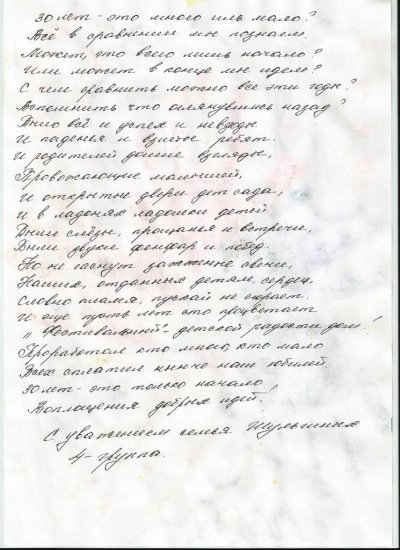 30 лет - это много иль мало?
Всё в сравнении мы познаем.
Может, это всего лишь начало?
Или может в конце мы идем?
С чем сравнить можно все эти годы?
Вспомнить что оглянувшись назад?
Было всё и успех и невзгоды
И паденья и взлеты ребят.
И родителей долгие взгляды,
Провожающие малышей,
И открытые двери детсада,
И в ладонях ладошки детей.
Были слёзы, прощанья и встречи,
Были звуки фанфар и побед.
Но не гаснут зажженные свечи,
Наших, отданных детям, сердец,
Словно пламя, пускай не сгорает.
И еще пусть лет сто процветает
"Фестивальный" - детской радости дом!
Проработал кто много, кто мало
Всех сплотил нынче наш юбилей.
30 лет - это только начало
Воплощения добрых идей!
С уважением семья
4 - группа.